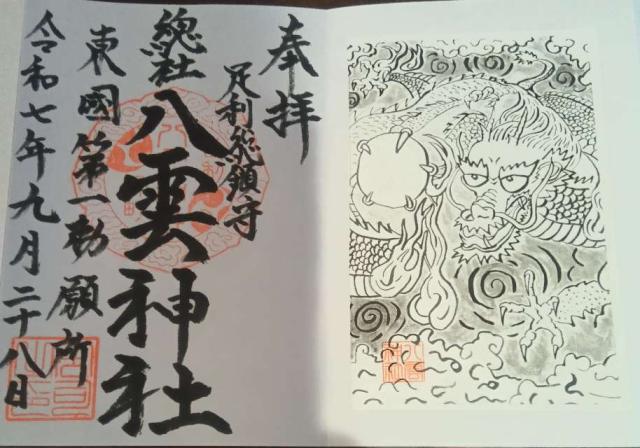 奉拝
足利総鎮守
總社
八雲神社
東國第一勅願所
令和七年九月二十八日